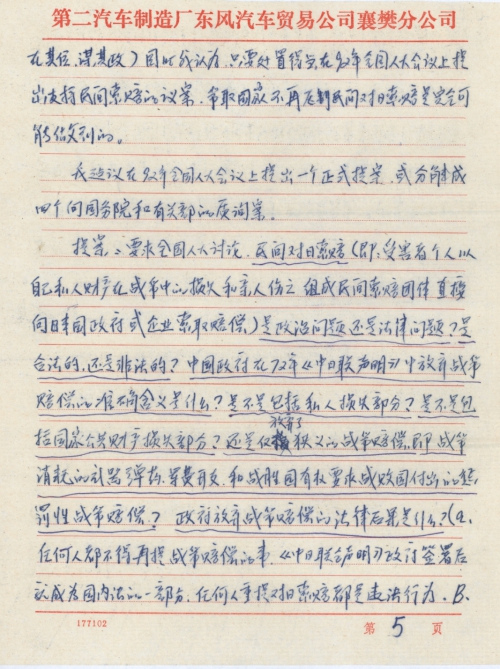 第二汽车制造厂东风汽车贸易公司襄樊分公司
在其位,谋其政)同时我认为,只要处置得当,在92年全国人大会议上提
出支持民间索赔的议案,争取国家不再压制民间对日索赔是完全可
能做到的。
我建议在92年全国人大会议上提出一个正式提案,或分解成
四个向国务院和有关部的质询案。
提案:要求全国人大讨论,民间对日索赔(即:受害者个人以
自己私人财产在战争中的损失和亲人伤亡 组成民间索赔团体 直接
向日本国政府或企业索取赔偿)是政治问题还是法律问题?是
合法的,还是非法的?中国政府在72年《中日联声明》中放弃战争
赔偿的准确含义是什么?是不是包括私人损失部分?是不是包
括国家公共财产损失部分?还是仅放弃了狭义的战争赔偿,即战争
消耗的武器弹药,军费开支,和战胜国有权要求战败国付出的惩
罚性战争赔偿?政府放弃战争赔偿的法律后果是什么?(A.
任何人都不得再提战争赔偿的事,《中日联合声明》政府签署后
就成为国内法的一部分,任何人重提对日索赔都是违法行为,B.
177102
第 5 页